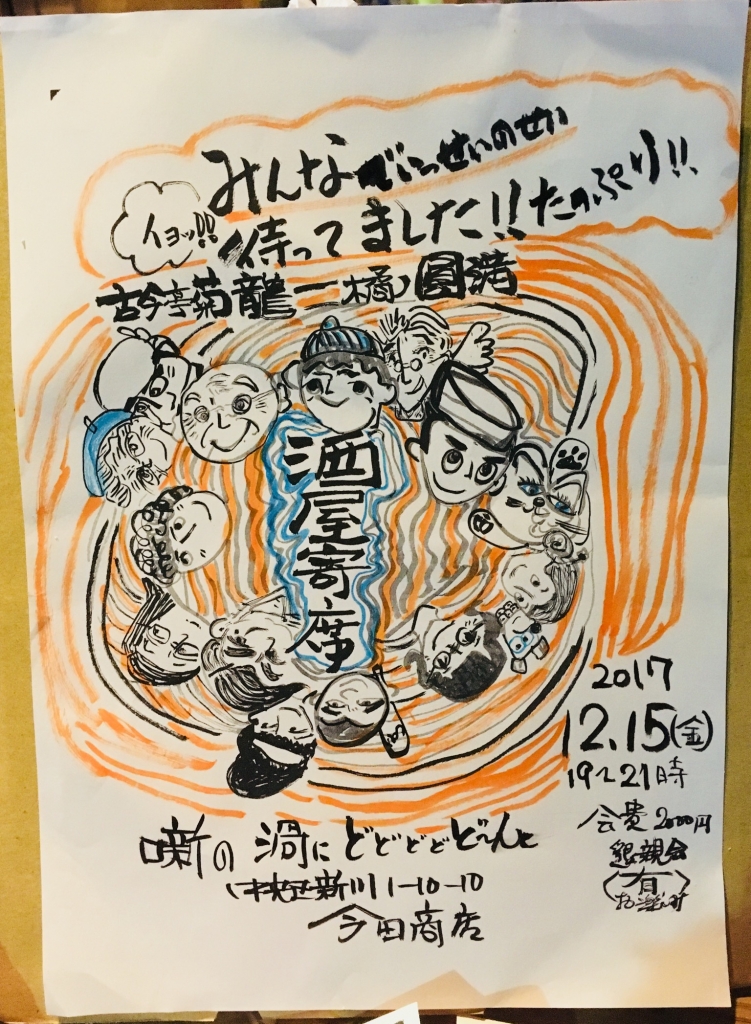 みんなでいっせいのせい
イヨッ!!
待ってました!!たのぷり!!
古今亭菊龍一橘ノ圓満
酒屋寄席
2017
12.15(金)
19~21時
会貴2000円
懇親会
(有)
お楽しみ
噺の渦にどどどどど〜んと
中央区新川1-10-10
今田商店